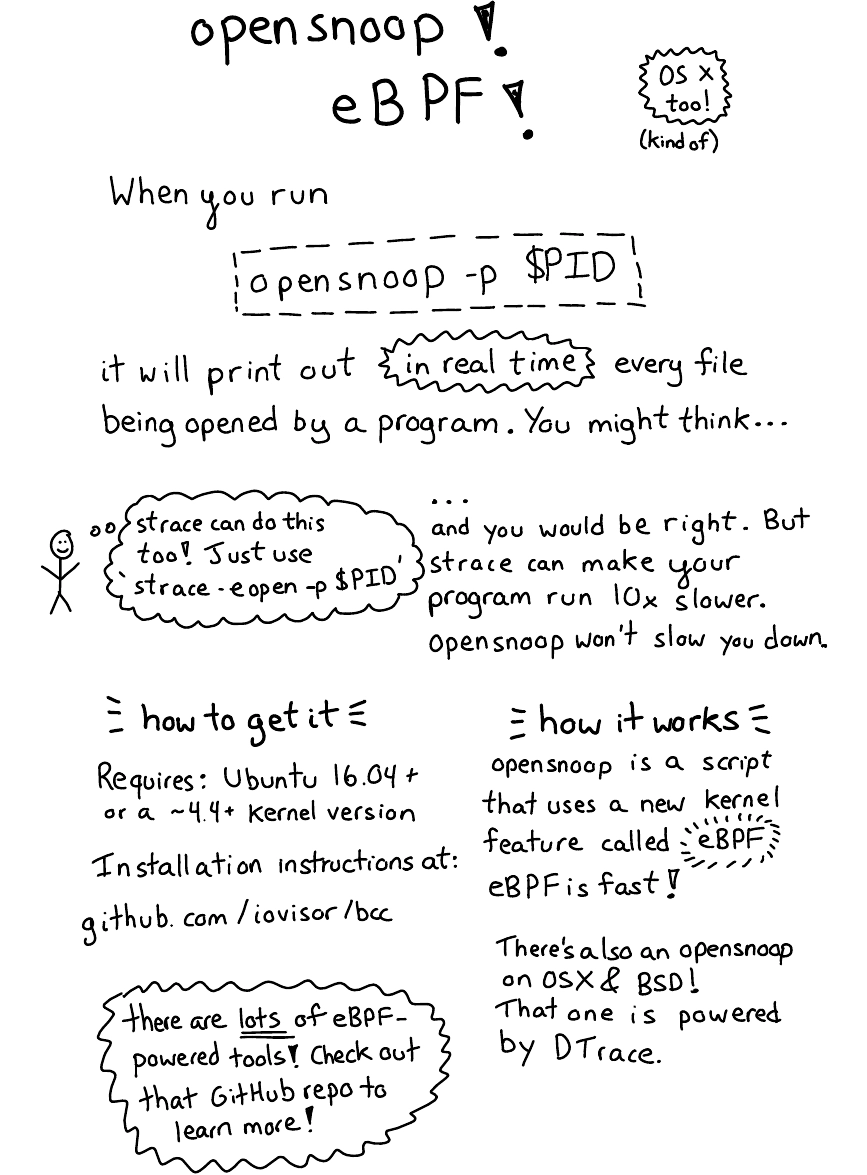 opensnoop!
eBPF!
OS X
too!
(kind of)
When you run
opensnoop -p $PID
it will print out in real time every file
being opened by a program. You might think...
strace can do this
too! Just use
`strace -e open -p $PID`
...
and you would be right. But
strace can make your
program run 10x slower.
opensnoop won't slow you down.
how to get it
Requires: Ubuntu 16.04+
or a ~4.4+ kernel version
Installation instructions at:
github.com/iovisor/bcc
there are lots of eBPF-
powered tools! Check out
that GitHub repo to
learn more!
how it works
opensnoop is a script
that uses a new kernel
feature called eBPF
eBPF is fast!
There's also an opensnoop
on OSX & BSD!
That one is powered
by DTrace.